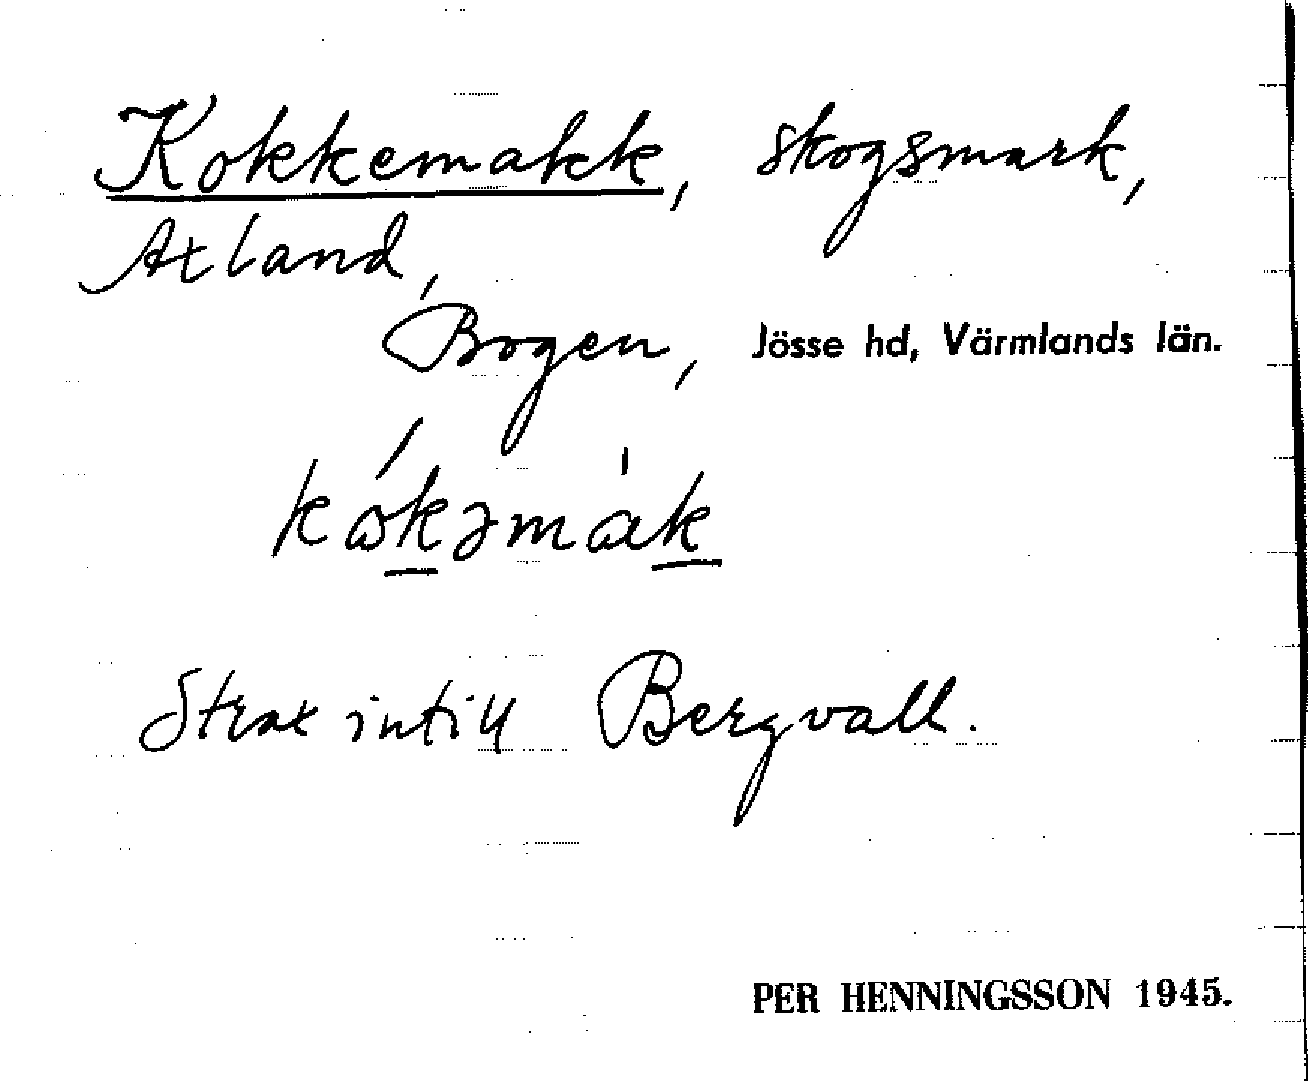 Kokkemakk, skogsmark,
Axland,
Bogen, Jösse hd, Värmlands län.
kókəmàk
Strax intill Bergvall.
PER HENNINGSSON 1945.